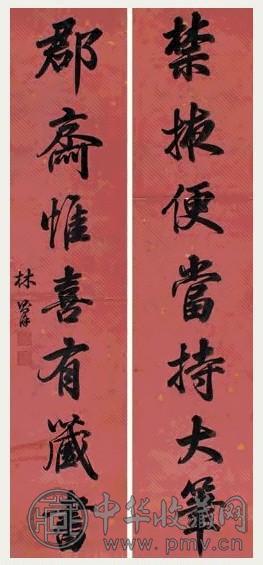 禁掖便當持大筆
郡齋惟喜有藏書
林
中华收藏网
www.pmv.cn